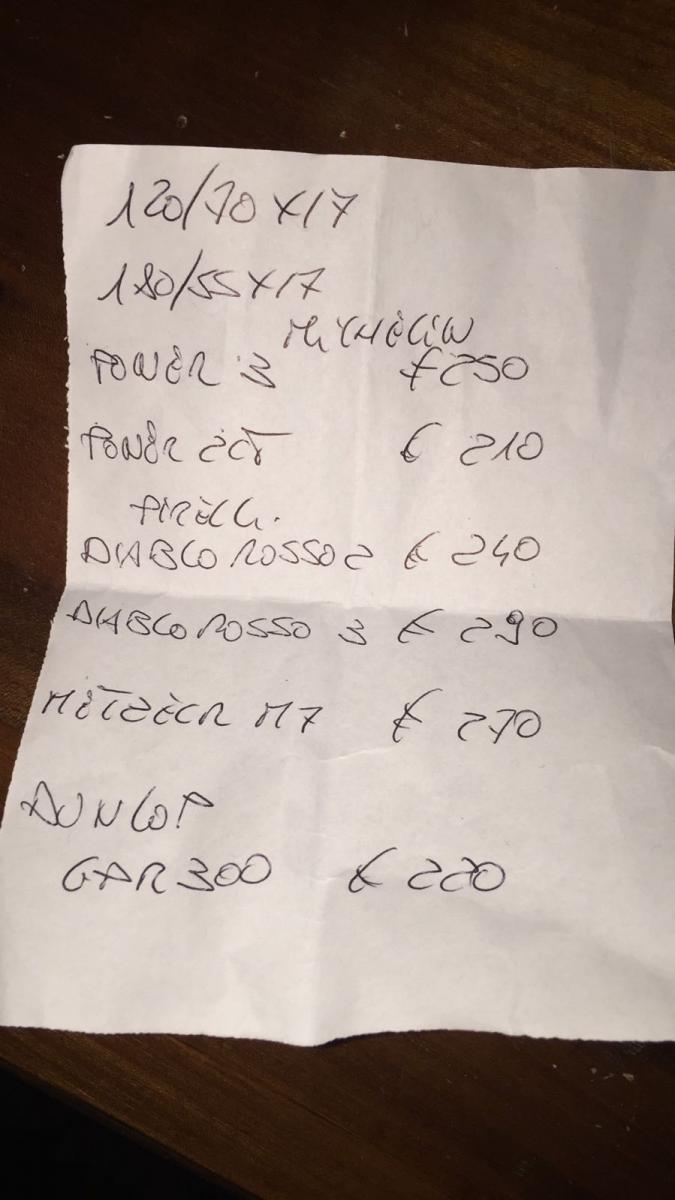 120/70X17
180/55X17
MICHELIN
POWER 3 €250
POWER 2CT € 210
PIRELLI.
DIABLO ROSSO 2 € 240
DIABLO ROSSO 3 € 290
METZELR M7 € 270
DUNLOP
GPR300 € 220